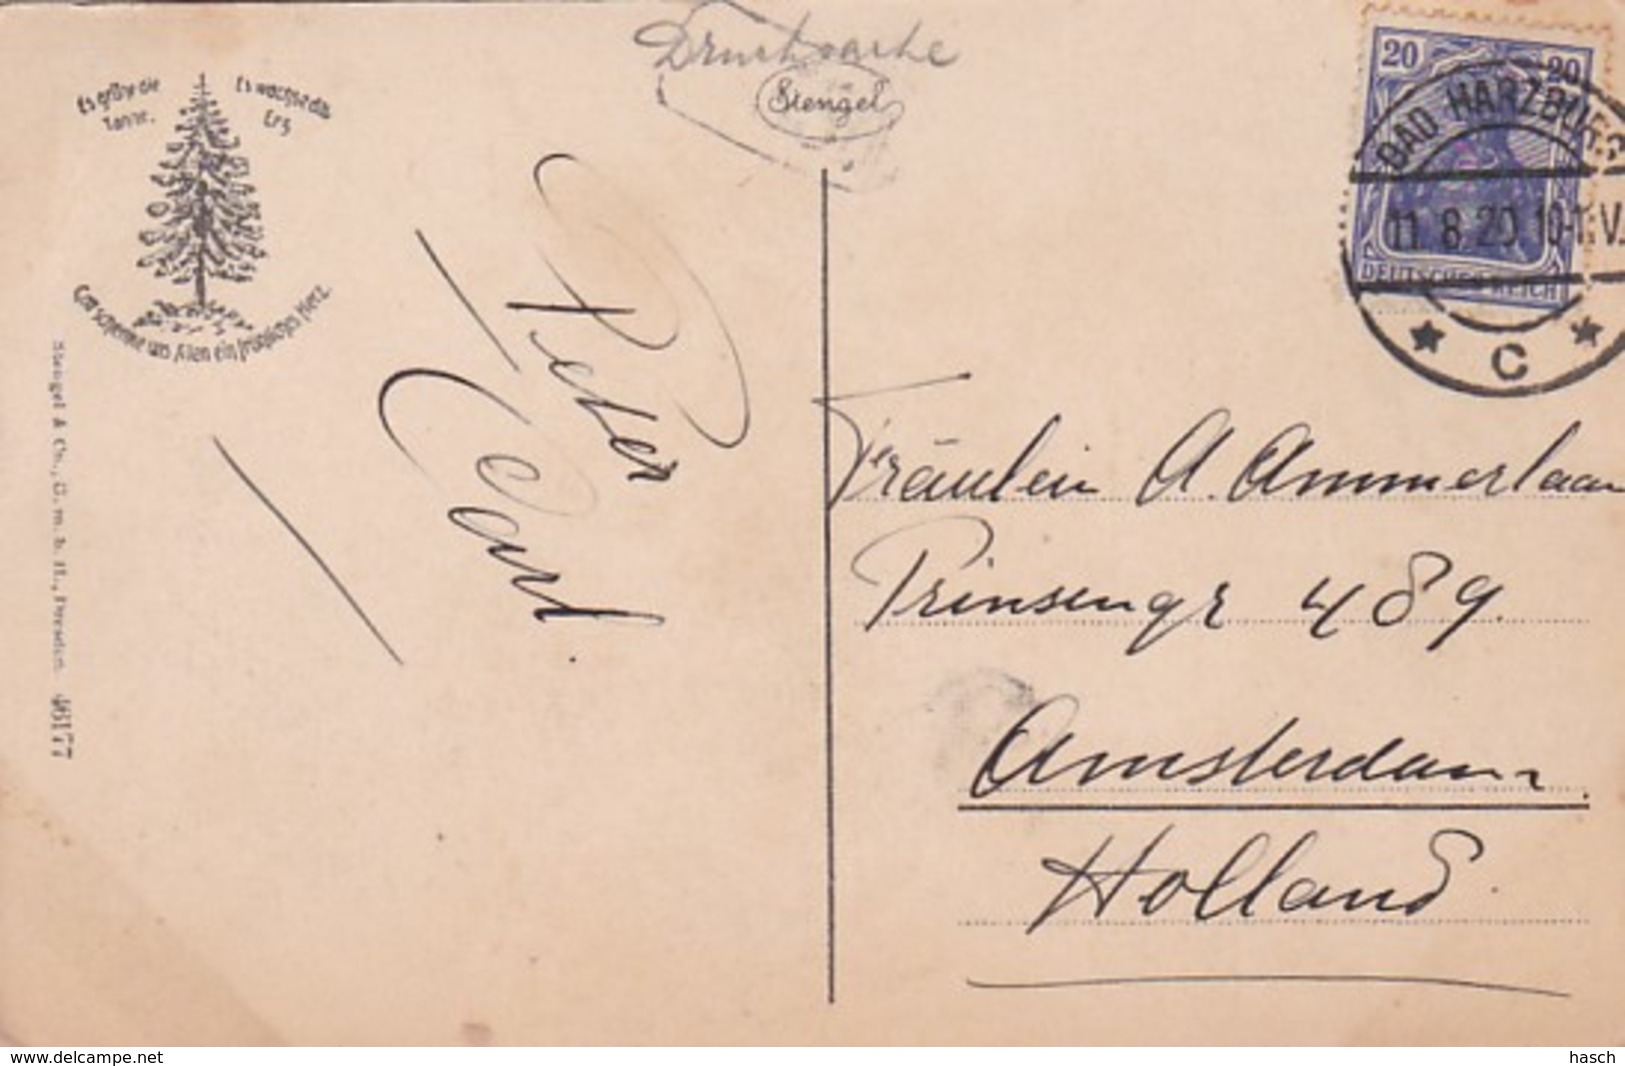 Drucksache
Stengel
Es grüne die
Tanne,
Es wachse das
Erz
Gott schenke uns Allen ein fröhliches Herz.
Stengel & Co., G. m. b. H., Dresden 46177
Peter
Carl.
20 20
BAD HARZBURG
11.8.20.10-11.V.
DEUTSCHES REICH
C
Fräulein A. Ammerlaan
Prinsengr 489.
Amsterdam.
Holland.
www.delcampe.net
hasch